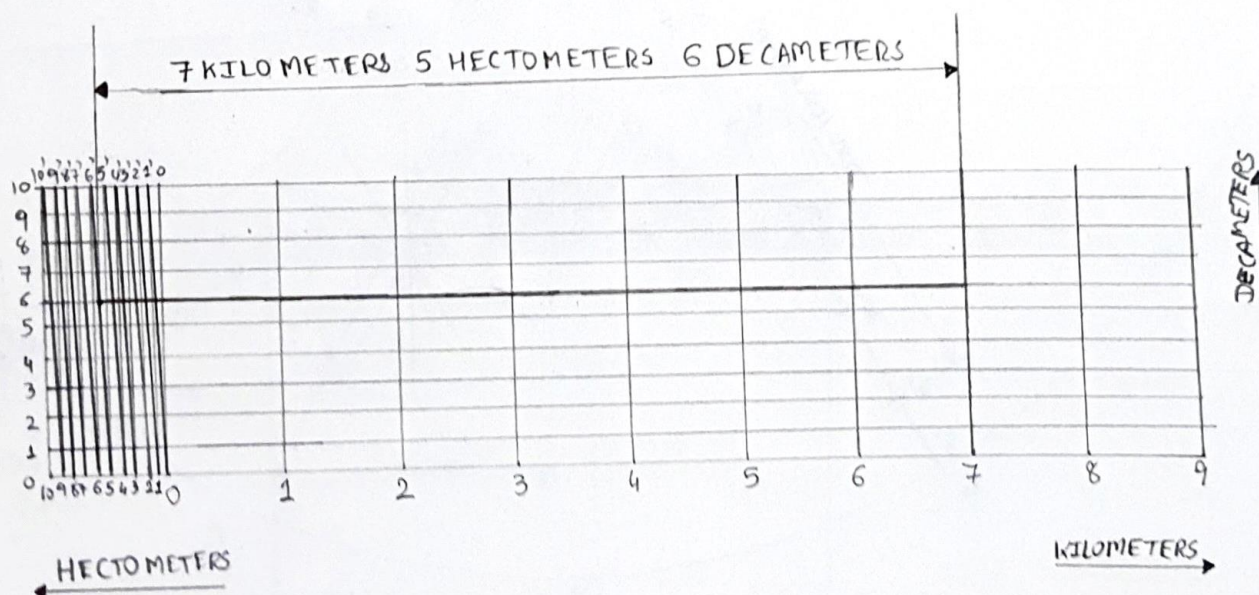 7 KILOMETERS 5 HECTOMETERS 6 DECAMETERS
10 9 8 7 6 5 4 3 2 1 0
10
9
8
7
6
5
4
3
2
1
0
10 9 8 7 6 5 4 3 2 1 0 1 2 3 4 5 6 7 8 9
DECAMETERS
HECTOMETERS
KILOMETERS